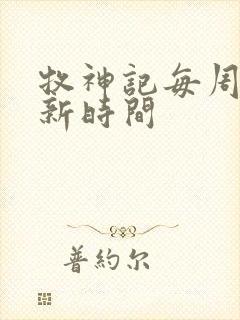 牧神記每周
新時間
普約尔